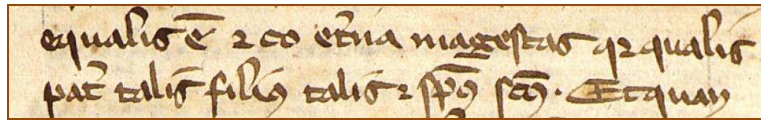 equalis ē ⁊ co et̄na magestas qꝛ qualis
pat̄ talis filiꝰ talis ⁊ sp̄ꝰ sc̄ꝰ. Et quan